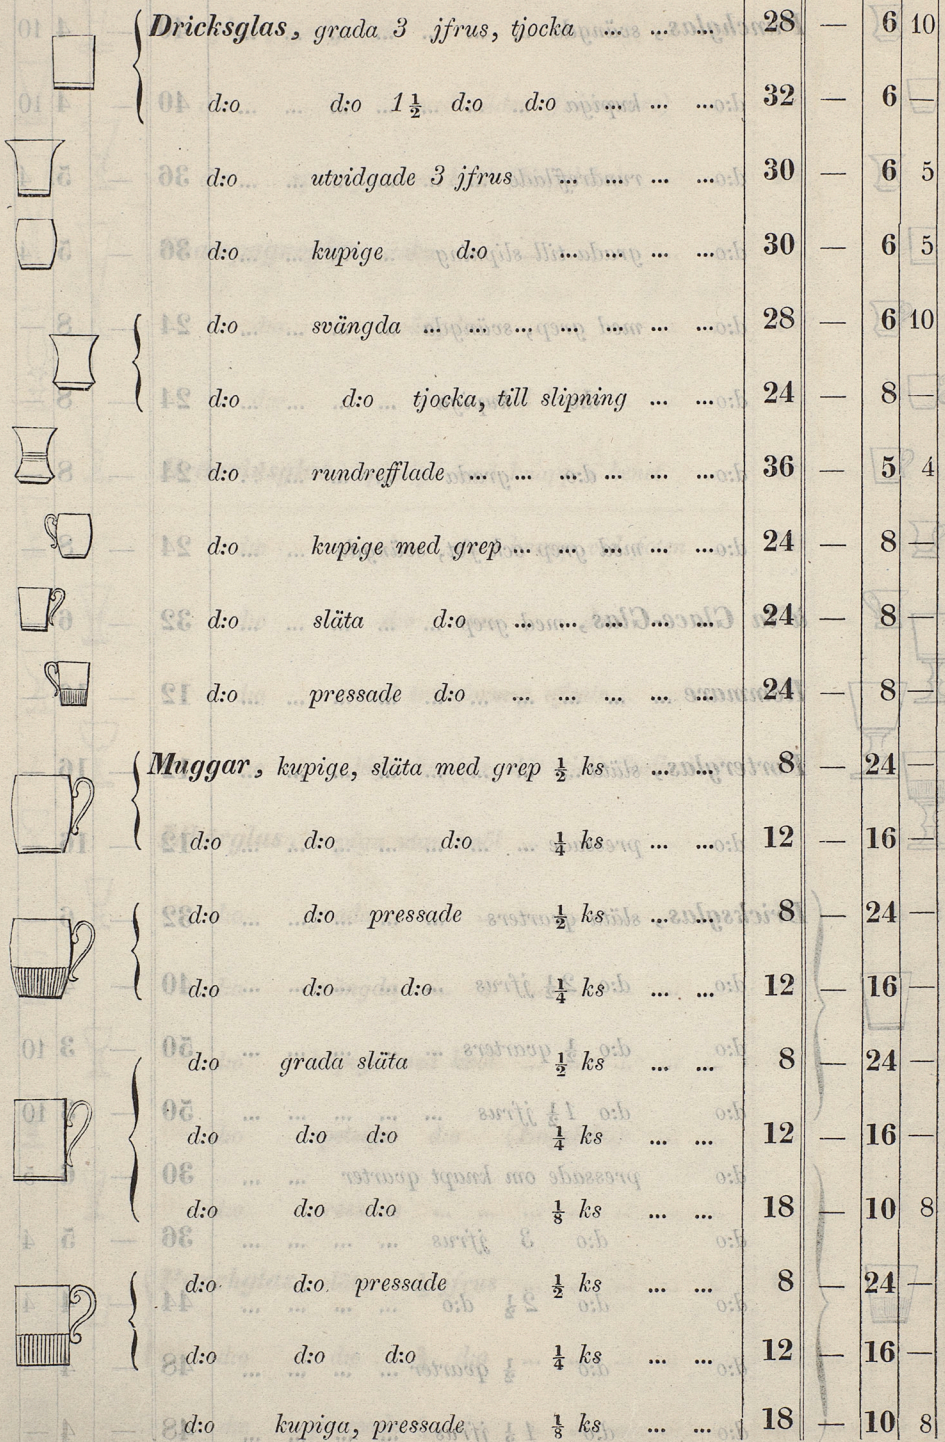 Dricksglas, grada 3 jfrus, tjocka ... ... ... 28 — 6 10
d:o d:o 1½ d:o d:o ... ... ... 32 — 6 —
d:o utvidgade 3 jfrus ... ... ... ... 30 — 6 5
d:o kupige d:o ... ... ... ... 30 — 6 5
d:o svängda ... ... ... ... ... ... ... 28 — 6 10
d:o d:o tjocka, till slipning ... ... 24 — 8 —
d:o rundrefflade ... ... ... ... ... ... 36 — 5 4
d:o kupige med grep ... ... ... ... ... 24 — 8 —
d:o släta d:o ... ... ... ... ... 24 — 8 —
d:o pressade d:o ... ... ... ... ... 24 — 8 —
Muggar, kupige, släta med grep ½ ks ... ... 8 — 24 —
d:o d:o d:o ¼ ks ... ... 12 — 16 —
d:o d:o pressade ½ ks ... ... 8 — 24 —
d:o d:o d:o ¼ ks ... ... 12 — 16 —
d:o grada släta ½ ks ... ... 8 — 24 —
d:o d:o d:o ¼ ks ... ... 12 — 16 —
d:o d:o d:o ⅛ ks ... ... 18 — 10 8
d:o d:o pressade ½ ks ... ... 8 — 24 —
d:o d:o d:o ¼ ks ... ... 12 — 16 —
d:o kupiga, pressade ⅛ ks ... ... 18 — 10 8